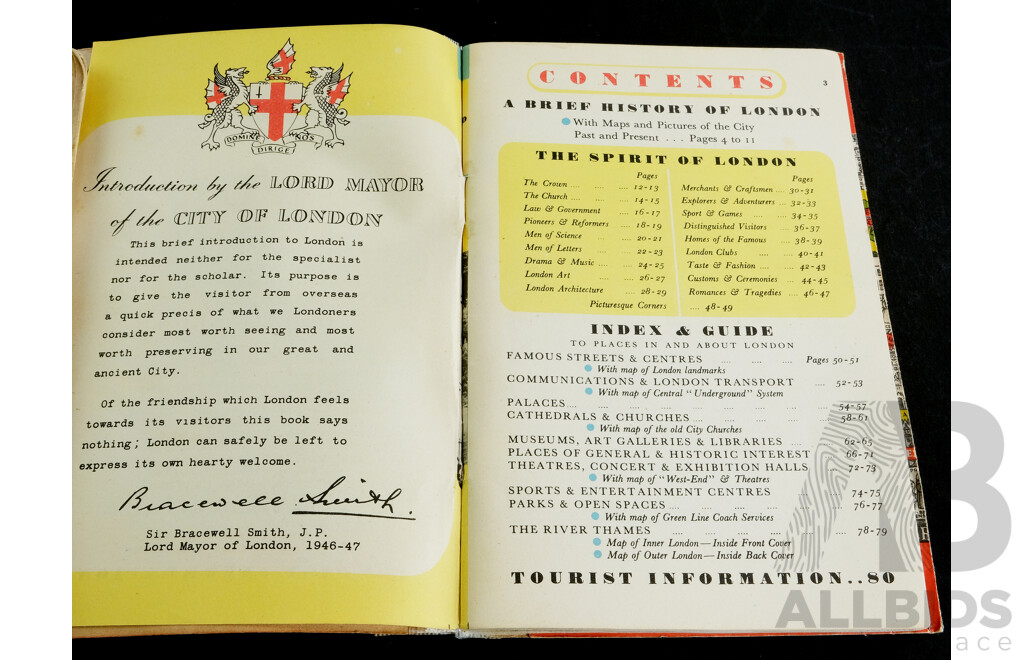 DOMINE NOS
DIRIGE
Introduction by the LORD MAYOR
of the CITY OF LONDON
This brief introduction to London is
intended neither for the specialist
nor for the scholar. Its purpose is
to give the visitor from overseas
a quick precis of what we Londoners
consider most worth seeing and most
worth preserving in our great and
ancient City.
Of the friendship which London feels
towards its visitors this book says
nothing; London can safely be left to
express its own hearty welcome.
Bracewell Smith.
Sir Bracewell Smith, J.P.
Lord Mayor of London, 1946-47
CONTENTS
3
A BRIEF HISTORY OF LONDON
With Maps and Pictures of the City
Past and Present . . . Pages 4 to 11
THE SPIRIT OF LONDON
Pages
The Crown ... ... .... 12-13
The Church .... .... .... 14-15
Law & Government .... 16-17
Pioneers & Reformers .... 18-19
Men of Science .... 20-21
Men of Letters .... .... 22-23
Drama & Music .... .... 24-25
London Art .... .... 26-27
London Architecture .... 28-29
Pages
Merchants & Craftsmen ... 30-31
Explorers & Adventurers ... 32-33
Sport & Games .... .... 34-35
Distinguished Visitors .... 36-37
Homes of the Famous .... 38-39
London Clubs .... .... 40-41
Taste & Fashion .... .... 42-43
Customs & Ceremonies .... 44-45
Romances & Tragedies .... 46-47
Picturesque Corners .... 48-49
INDEX & GUIDE
TO PLACES IN AND ABOUT LONDON
FAMOUS STREETS & CENTRES .... .... .... Pages 50-51
With map of London landmarks
COMMUNICATIONS & LONDON TRANSPORT .... 52-53
With map of Central "Underground" System
PALACES .... .... .... .... .... .... .... 54-57
CATHEDRALS & CHURCHES .... .... .... .... 58-61
With map of the old City Churches
MUSEUMS, ART GALLERIES & LIBRARIES .... .... 62-65
PLACES OF GENERAL & HISTORIC INTEREST 66-71
THEATRES, CONCERT & EXHIBITION HALLS .... 72-73
With map of "West-End" & Theatres
SPORTS & ENTERTAINMENT CENTRES .... .... 74-75
PARKS & OPEN SPACES .... .... .... .... .... 76-77
With map of Green Line Coach Services
THE RIVER THAMES .... .... .... .... .... 78-79
Map of Inner London—Inside Front Cover
Map of Outer London—Inside Back Cover
TOURIST INFORMATION..80
AB
ALLBIDS
ace